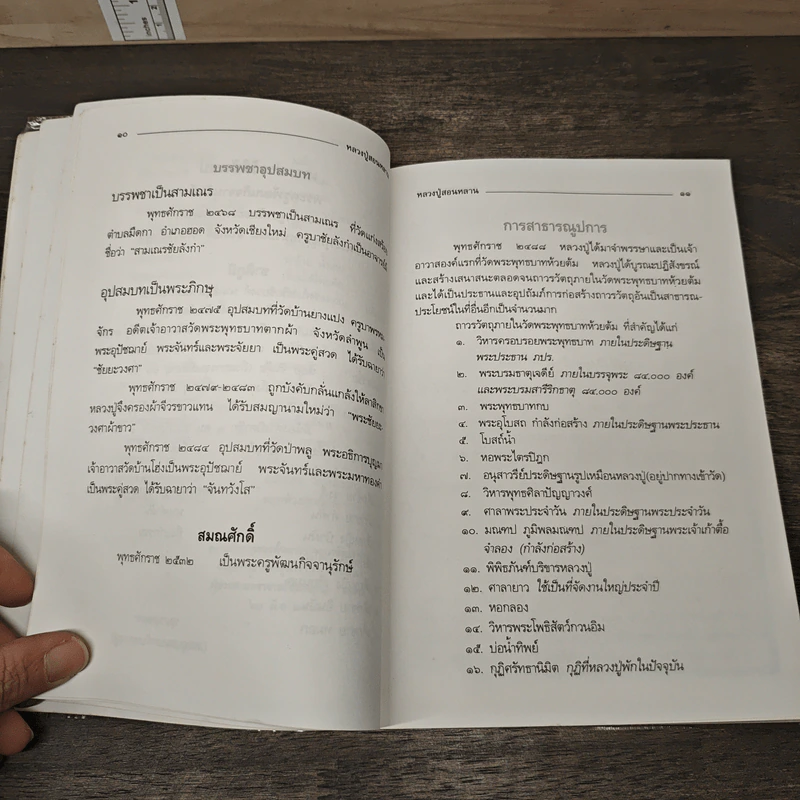 ๑๐
หลวงปู่สอนหลาน
บรรพชาอุปสมบท
บรรพชาเป็นสามเณร
พุทธศักราช ๒๔๖๘ บรรพชาเป็นสามเณร ที่วัดแก่ง
ตำบลมืดกา อำเภอฮอด จังหวัดเชียงใหม่ ครูบาชัยลังก๋าเป็นอาจารย์
ชื่อว่า "สามเณรชัยลังก๋า"
อุปสมบทเป็นพระภิกษุ
พุทธศักราช ๒๔๗๕ อุปสมบทที่วัดบ้านยางแปง ครูบาพรหม
จักร อดีตเจ้าอาวาสวัดพระพุทธบาทตากผ้า จังหวัดลำพูน เป็น
พระอุปัชฌาย์ พระจันทร์และพระจัยยา เป็นพระคู่สวด ได้รับฉายาว่า
"ชัยยะวงศา"
พุทธศักราช ๒๔๗๙-๒๔๘๓ ถูกบังคับกลั่นแกล้งให้ลาสิกขา
หลวงปู่จึงครองผ้าจีวรขาวแทน ได้รับสมญานามใหม่ว่า "พระชัยยะ
วงศาผ้าขาว"
พุทธศักราช ๒๔๘๔ อุปสมบทที่วัดป่าพลู พระอธิการบุญมา
เจ้าอาวาสวัดบ้านโฮ่งเป็นพระอุปัชฌาย์ พระจันทร์และพระมหาทองคำ
เป็นพระคู่สวด ได้รับฉายาว่า "จันทวังโส"
สมณศักดิ์
พุทธศักราช ๒๕๓๒ เป็นพระครูพัฒนกิจจานุรักษ์
หลวงปู่สอนหลาน
๑๑
การสาธารณูปการ
พุทธศักราช ๒๔๘๘ หลวงปู่ได้มาจำพรรษาและเป็นเจ้า
อาวาสองค์แรกที่วัดพระพุทธบาทห้วยต้ม หลวงปู่ได้บูรณะปฏิสังขรณ์
และสร้างเสนาสนะตลอดจนถาวรวัตถุภายในวัดพระพุทธบาทห้วยต้ม
และได้เป็นประธานและอุปถัมภ์การก่อสร้างถาวรวัตถุอันเป็นสาธารณ-
ประโยชน์ในที่อื่นอีกเป็นจำนวนมาก
ถาวรวัตถุภายในวัดพระพุทธบาทห้วยต้ม ที่สำคัญได้แก่
๑. วิหารครอบรอยพระพุทธบาท ภายในประดิษฐาน
พระประธาน ภปร.
๒. พระบรมธาตุเจดีย์ ภายในบรรจุพระ ๘๔.๐๐๐ องค์
และพระบรมสารีริกธาตุ ๘๔.๐๐๐ องค์
๓. พระพุทธบาทกบ
๔. พระอุโบสถ กำลังก่อสร้าง ภายในประดิษฐานพระประธาน
๕. โบสถ์น้ำ
๖. หอพระไตรปิฎก
๗. อนุสาวรีย์ประดิษฐานรูปเหมือนหลวงปู่(อยู่ปากทางเข้าวัด)
๘. วิหารพุทธศิลาปัญญาวงศ์
๙. ศาลาพระประจำวัน ภายในประดิษฐานพระประจำวัน
๑๐. มณฑป ภูมิพลมณฑป ภายในประดิษฐานพระเจ้าเก้าตื้อ
จำลอง (กำลังก่อสร้าง)
๑๑. พิพิธภัณฑ์บริขารหลวงปู่
๑๒. ศาลายาว ใช้เป็นที่จัดงานใหญ่ประจำปี
๑๓. หอกลอง
๑๔. วิหารพระโพธิสัตว์กวนอิม
๑๕. บ่อน้ำทิพย์
๑๖. กุฏิศรัทธานิมิต กุฏิที่หลวงปู่พักในปัจจุบัน